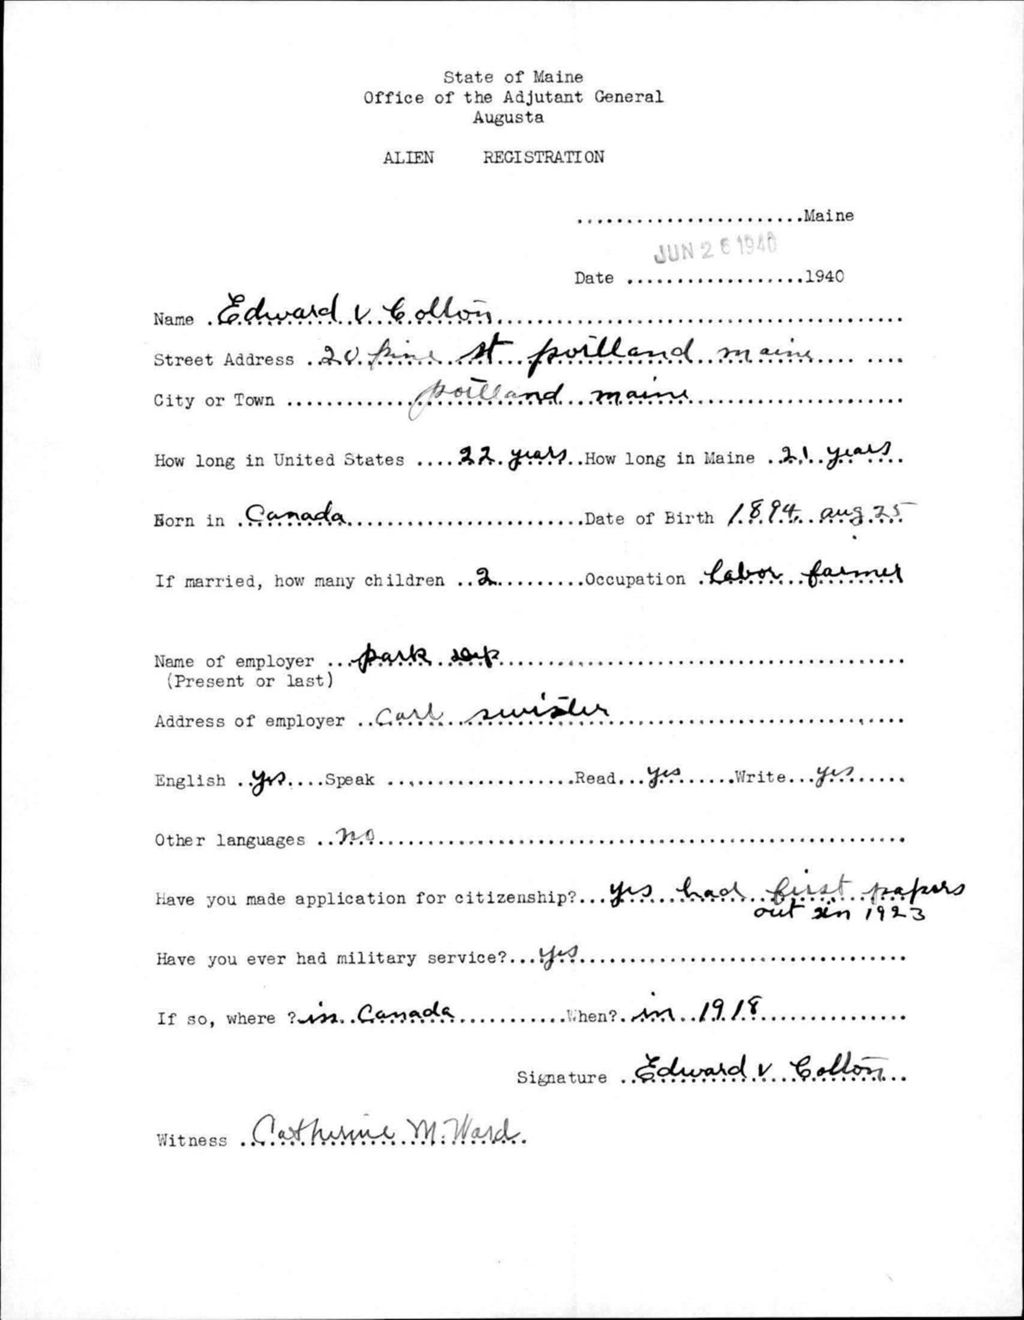 State of Maine
Office of the Adjutant General
Augusta
ALIEN REGISTRATION
.......................Maine
JUN 26 1940
Date ..................1940
Name Edward V Colton
Street Address 20 pine st portland maine
City or Town portland maine
How long in United States 22 years How long in Maine 21 years
Born in Canada Date of Birth 1894 aug 25
If married, how many children 2 Occupation labor farmer
Name of employer park
(Present or last)
Address of employer Carl
English yes Speak Read yes Write yes
Other languages no
Have you made application for citizenship? yes had first papers
out in 1923
Have you ever had military service? yes
If so, where ? in Canada When? in 1918
Signature Edward V Colton
Witness Catherine M. Ward